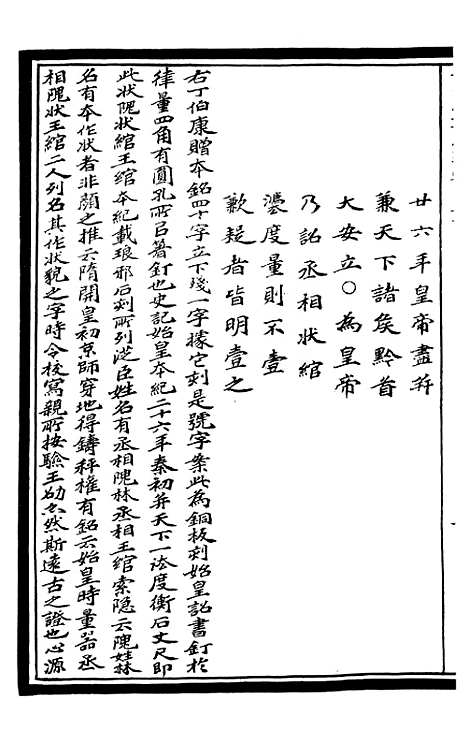 廿六年皇帝盡并
兼天下諸矦黔首
大安立○為皇帝
乃詔丞相狀綰
灋度量則不壹
歉疑者皆明壹之
右丁伯康贈本銘四十字立下殘一字據它刻是號字案此為銅板刻始皇詔書釘於
律量四角有圓孔所㠯著釘也史記始皇本紀二十六年秦初并天下一法度衡石丈尺即
此狀隗狀綰王綰本紀載琅邪石刻所列從臣姓名有丞相隗林丞相王綰索隱云隗姓林
名有本作狀者非顏之推云隋開皇初京師穿地得鑄秤權有銘云始皇時量器丞
相隗狀王綰二人列名其作狀貌之字時令校寫親所按驗王劭亦然斯遠古之證也心源